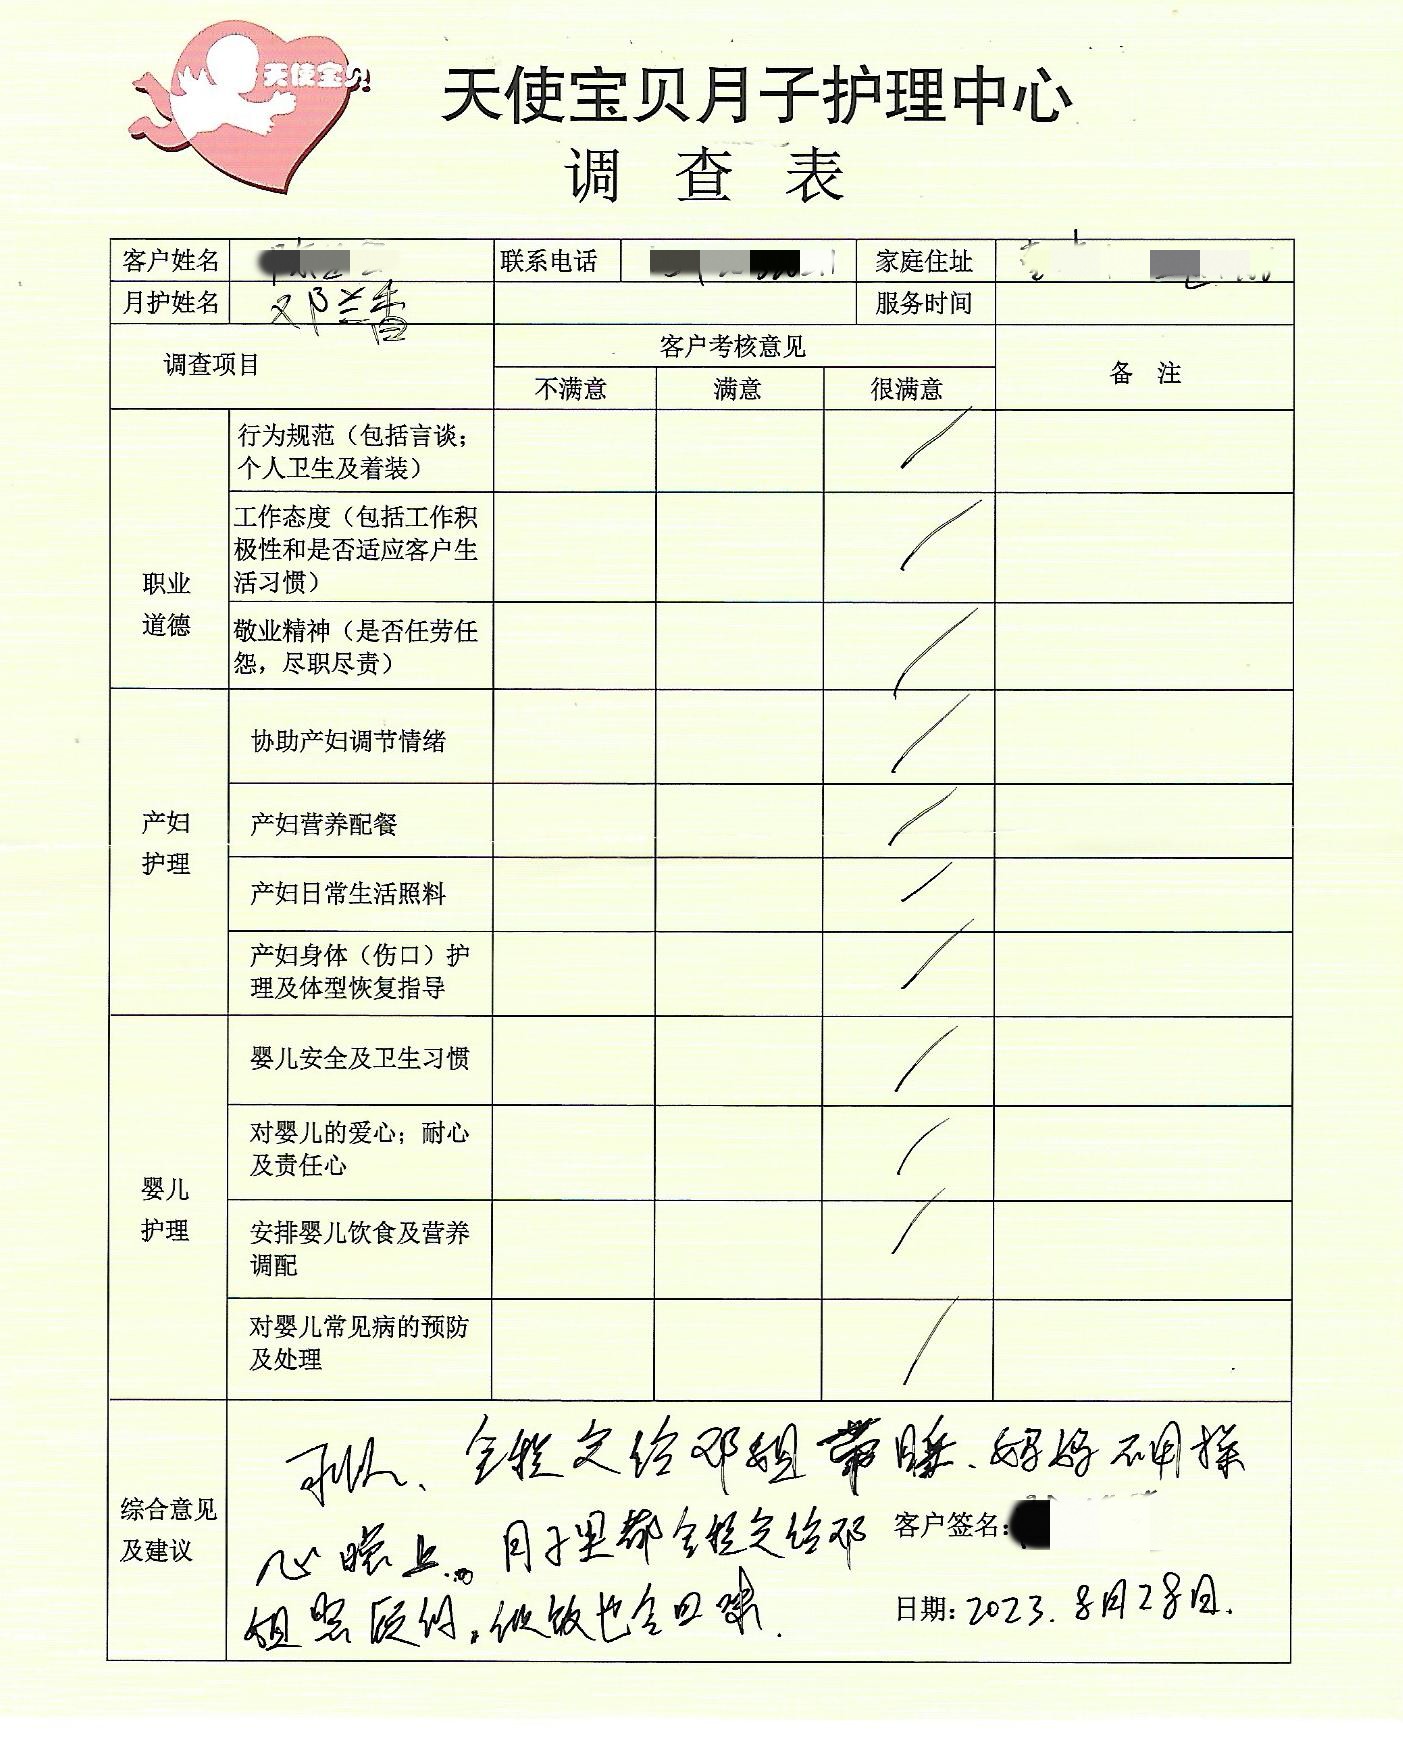 天使宝贝
天使宝贝月子护理中心
调 查 表
客户姓名 联系电话 家庭住址
月护姓名 邓兰香 服务时间
调查项目 客户考核意见 备 注
不满意 满意 很满意
职业
道德
行为规范（包括言谈；
个人卫生及着装）
工作态度（包括工作积
极性和是否适应客户生
活习惯）
敬业精神（是否任劳任
怨，尽职尽责）
产妇
护理
协助产妇调节情绪
产妇营养配餐
产妇日常生活照料
产妇身体（伤口）护
理及体型恢复指导
婴儿
护理
婴儿安全及卫生习惯
对婴儿的爱心；耐心
及责任心
安排婴儿饮食及营养
调配
对婴儿常见病的预防
及处理
综合意见
及建议
全程交给邓姐带睡、妈妈不用操
心晚上。月子里都全程交给邓
姐照顾的。做饭也合口味.
客户签名：
日期：2023.8月28日.